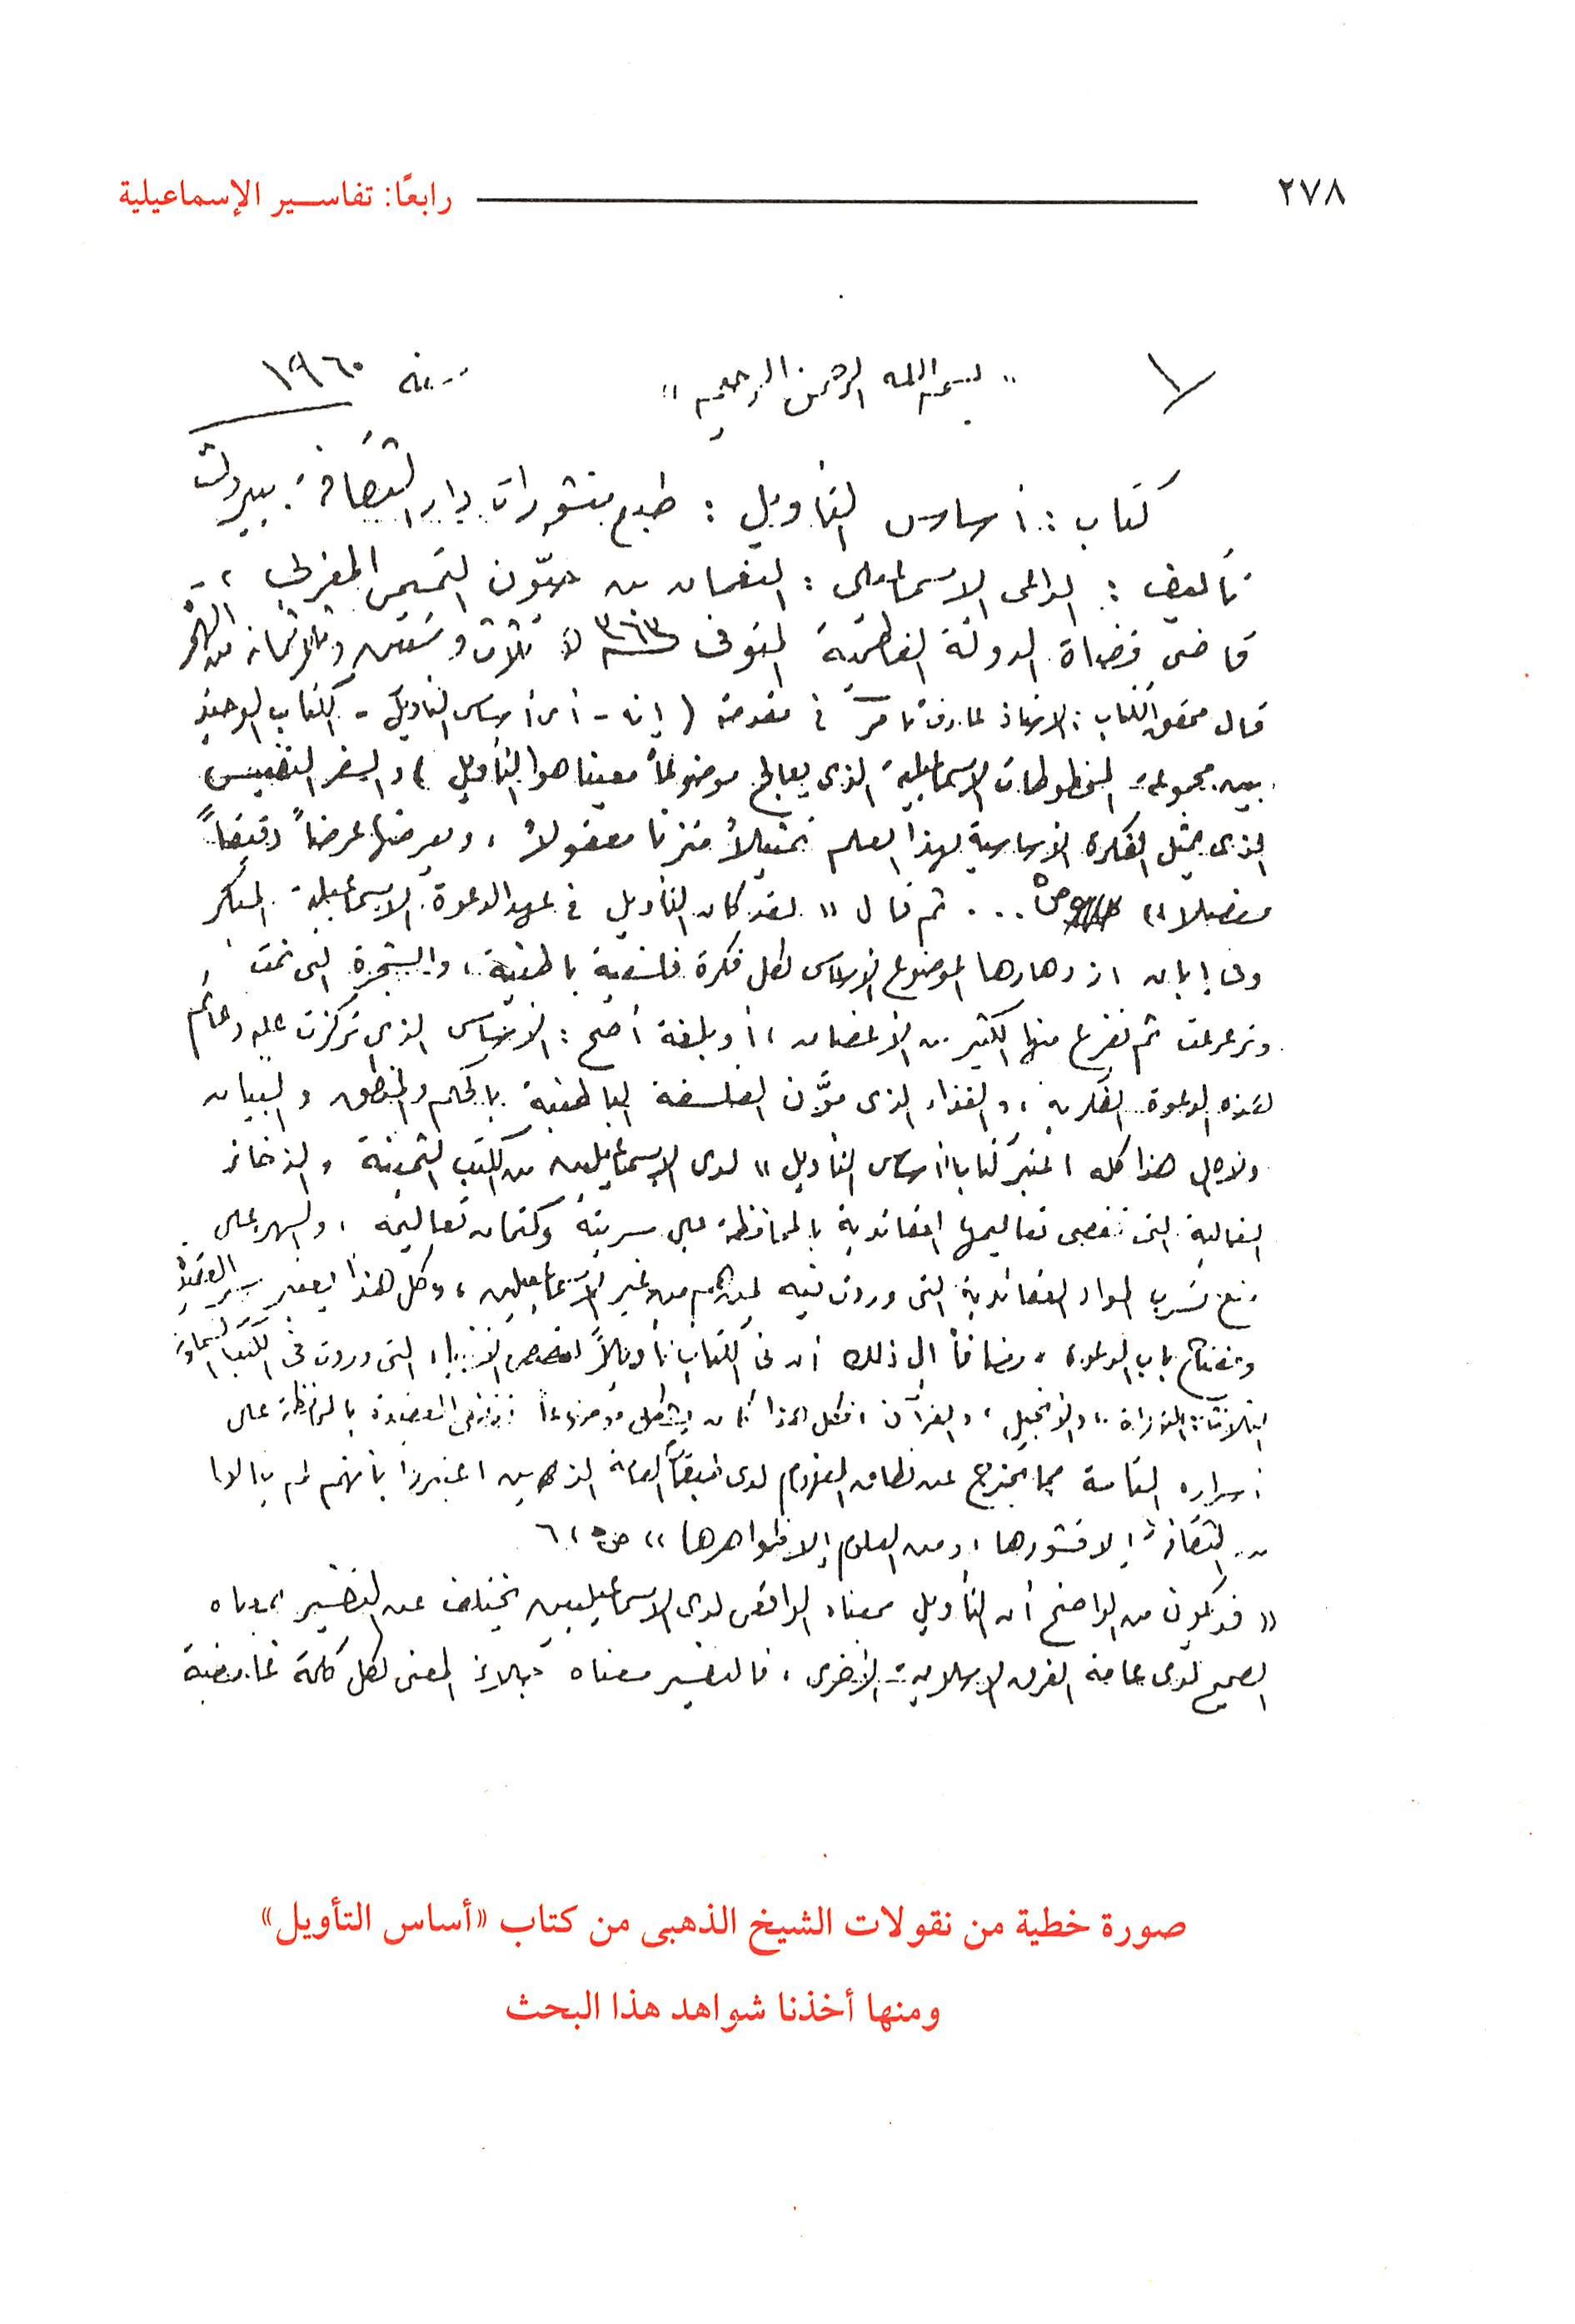 ٢٧٨ رابعًا: تفاســير الإسماعيلية
١ «بسم الله الرحمن الرحيم» سنة ١٩٦٠
كتاب: أساس التأويل: طبع منشورات دار الثقافة. بيروت
تأليف: الداعى الاسماعيلى: النعمان بن حيّون التميمى المغربى،
قاضى قضاة الدولة الفاطمية المتوفى ٣٦٣ ثلاث وستين وثلاثمائة من الهجرة
قال محقق الكتاب: الاستاذ عارف تامر فى مقدمته (إنه - أى أساس التأويل - الكتاب الوحيد
بين مجموعة المخطوطات الاسماعيلية الذى يعالج موضوعاً معينا هو التأويل، والسفر النفيس
الذى يمثل الفكرة الأساسية لهذا العلم تمثيلاً متزنا معقولاً، ويعرضها عرضاً دقيقاً
مفصلا» ص٥ ... ثم قال «لقد كان التأويل فى عهد الدعوة الاسماعيلية المبكر
وفى إبان ازدهارها الموضوع الأساسى لكل فكرة فلسفية باطنية، والشجرة التى نمت
وترعرعت ثم تفرع منها الكثير من الأغصان، أو بلغة أصح: الأساس الذى تركزت عليه دعائم
هذه الدعوة الفكرية، والغذاء الذى موَّن الفلسفة الباطنية بالحكم والمنطق والبيان
ولأجل هذا كله اعتبر كتاب «أساس التأويل» لدى الاسماعيليين من الكتب الثمينة والذخائر
الغالية التى تقضى تعاليمها العقائدية بالمحافظة على سريته وكتمان تعاليمه، والسهر على
منع تسرب المواد العقائدية التى وردت فيه لغيرهم من غير الاسماعيليين، وكل هذا يعتبر سر العقيدة
ومفتاح باب الدعوة، ومضافاً إلى ذلك أن فى الكتاب تأويلاً لقصص الأنبياء التى وردت فى الكتب السماوية
الثلاثة: التوراة، والإنجيل، والقرآن، فكل هذا كان يشكل موضوعاً تقضى العقيدة بالمحافظة على
أسراره التامة مما يخرج عن نطاق المفهوم لدى طبقات العامة الذين اعتبروا بأنهم لم ينالوا
من الثقافة إلا قشورها، ومن العلوم إلا ظواهرها» ص٥، ٦
«فيكون من الواضح أن التأويل بمعناه الواقعى لدى الاسماعيليين يختلف عن التفسير بمعناه
الصحيح لدى عامة الفرق الاسلامية الأخرى، فالتفسير معناه المعنى لكل كلمة غامضة
صورة خطية من نقولات الشيخ الذهبى من كتاب «أساس التأويل»
ومنها أخذنا شواهد هذا البحث